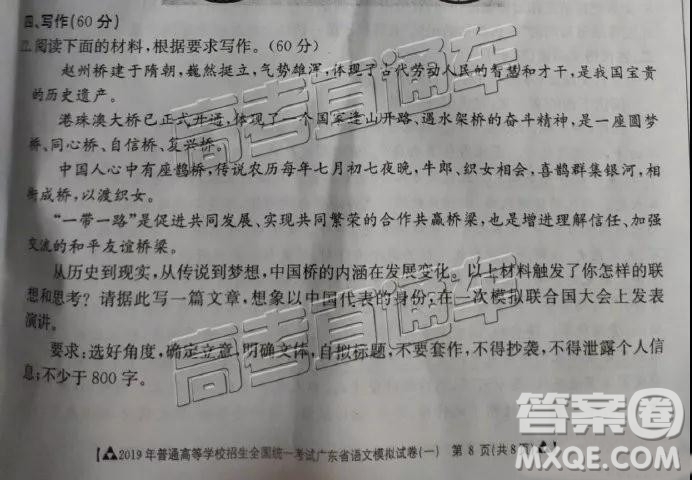 四、写作(60分)
22.阅读下面的材料,根据要求写作。(60分)
赵州桥建于隋朝,巍然挺立,气势雄浑,体现了古代劳动人民的智慧和才干,是我国宝贵
的历史遗产。
港珠澳大桥已正式开通,体现了一个国家逢山开路、遇水架桥的奋斗精神,是一座圆梦
桥、同心桥、自信桥、复兴桥。
中国人心中有座鹊桥,传说农历每年七月初七夜晚,牛郎、织女相会,喜鹊群集银河,相
衔成桥,以渡织女。
“一带一路”是促进共同发展、实现共同繁荣的合作共赢桥梁,也是增进理解信任、加强
交流的和平友谊桥梁。
从历史到现实,从传说到梦想,中国桥的内涵在发展变化。以上材料触发了你怎样的联
想和思考?请据此写一篇文章,想象以中国代表的身份,在一次模拟联合国大会上发表
演讲。
要求:选好角度,确定立意,明确文体,自拟标题,不要套作,不得抄袭,不得泄露个人信
息;不少于800字。
【2019年普通高等学校招生全国统一考试广东省语文模拟试卷(一) 第8页(共8页)】
高考直通车
高考直通车
答案圈
MXQE.COM